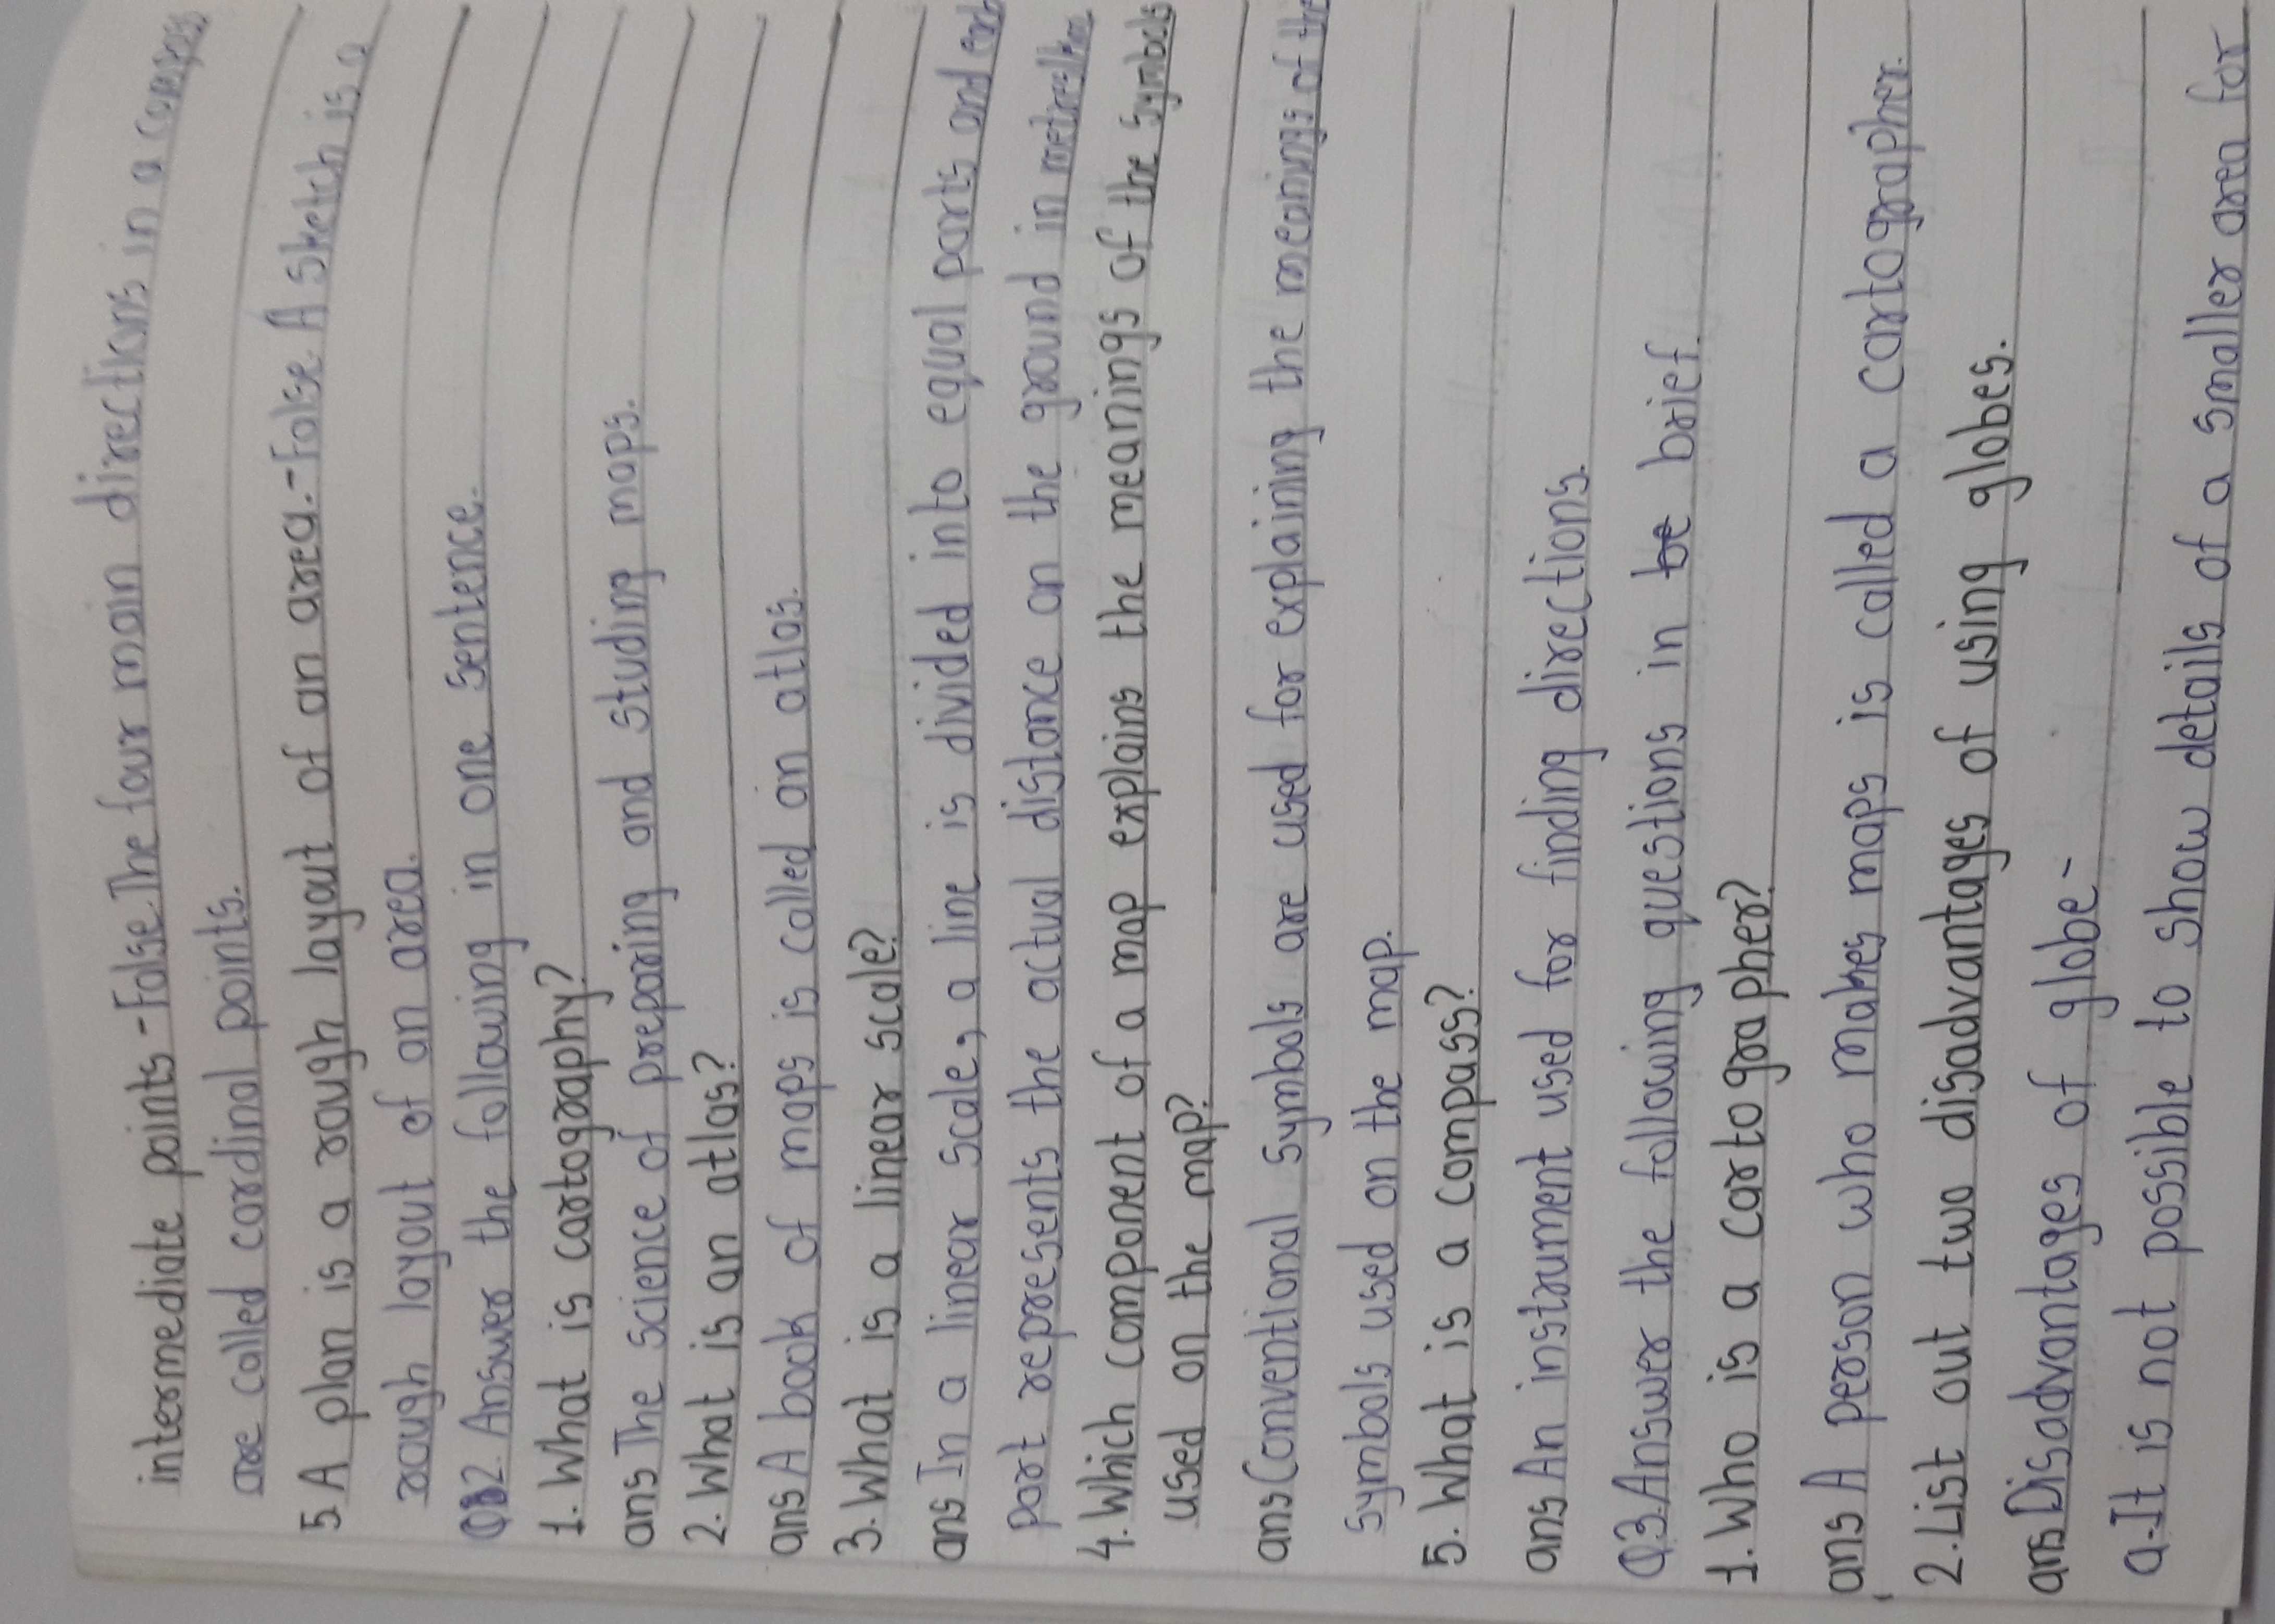 intermediate points - False. The four main directions in a
are called cardinal points.
5. A plan is a rough layout of an area. - False. A sketch is a
rough layout of an area.
Q2. Answer the following in one sentence.
1. What is cartography?
ans The science of preparing and studing maps.
2. What is an atlas?
ans A book of maps is called an atlas.
3. What is a linear scale?
ans In a linear scale, a line is divided into equal parts and
part represents the actual distance on the ground in
4. Which component of a map explains the meanings of the symbols
used on the map?
ans Conventional symbols are used for explaining the meanings of the
symbols used on the map.
5. What is a compass?
ans An instrument used for finding directions.
Q3. Answer the following questions in be brief.
1. Who is a cartographer?
ans A person who makes maps is called a cartographer.
2. List out two disadvantages of using globes.
ans Disadvantages of globe -
a. It is not possible to show details of a smaller area for